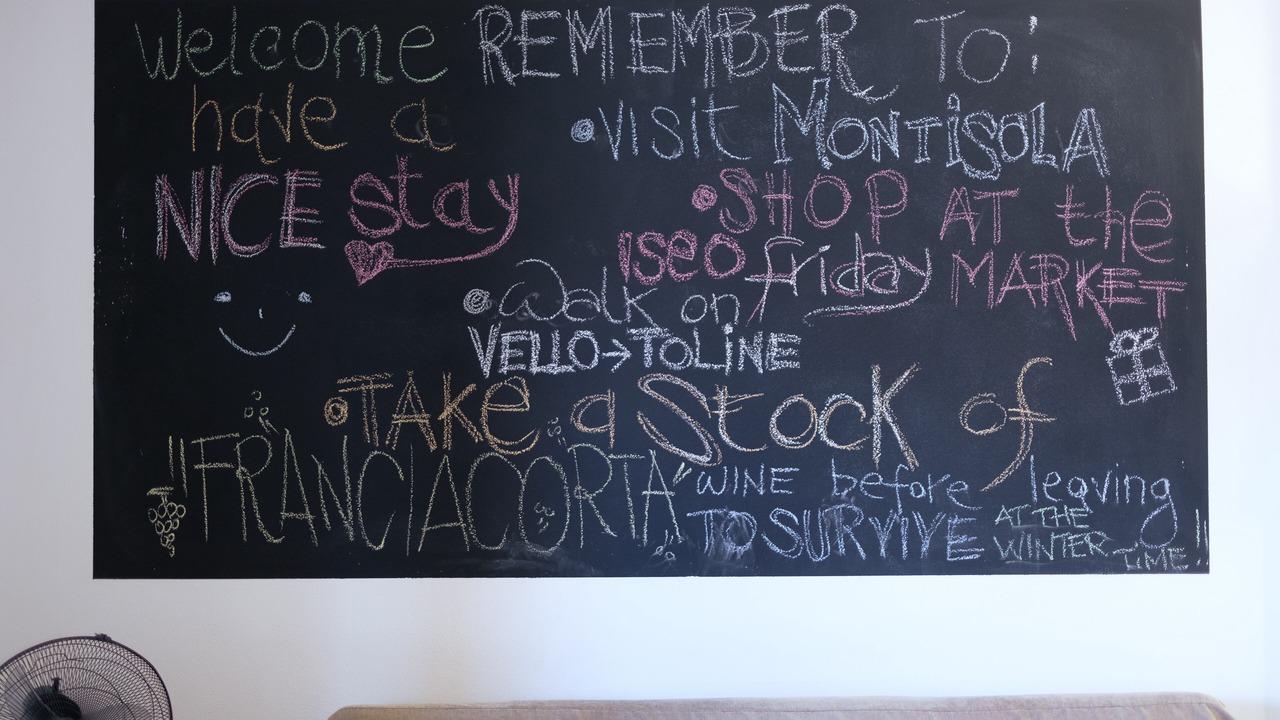 Welcome
have a
NICE stay
REMEMBER To:
• VISIt MONTISOLA
• SHOP AT the
ISEO friday MARKET
• Walk on
VELLO→TOLINE
• TAKE a Stock of
"FRANCIACORTA" WINE before leaving
TO SURVIVE AT THE
WINTER TIME!!